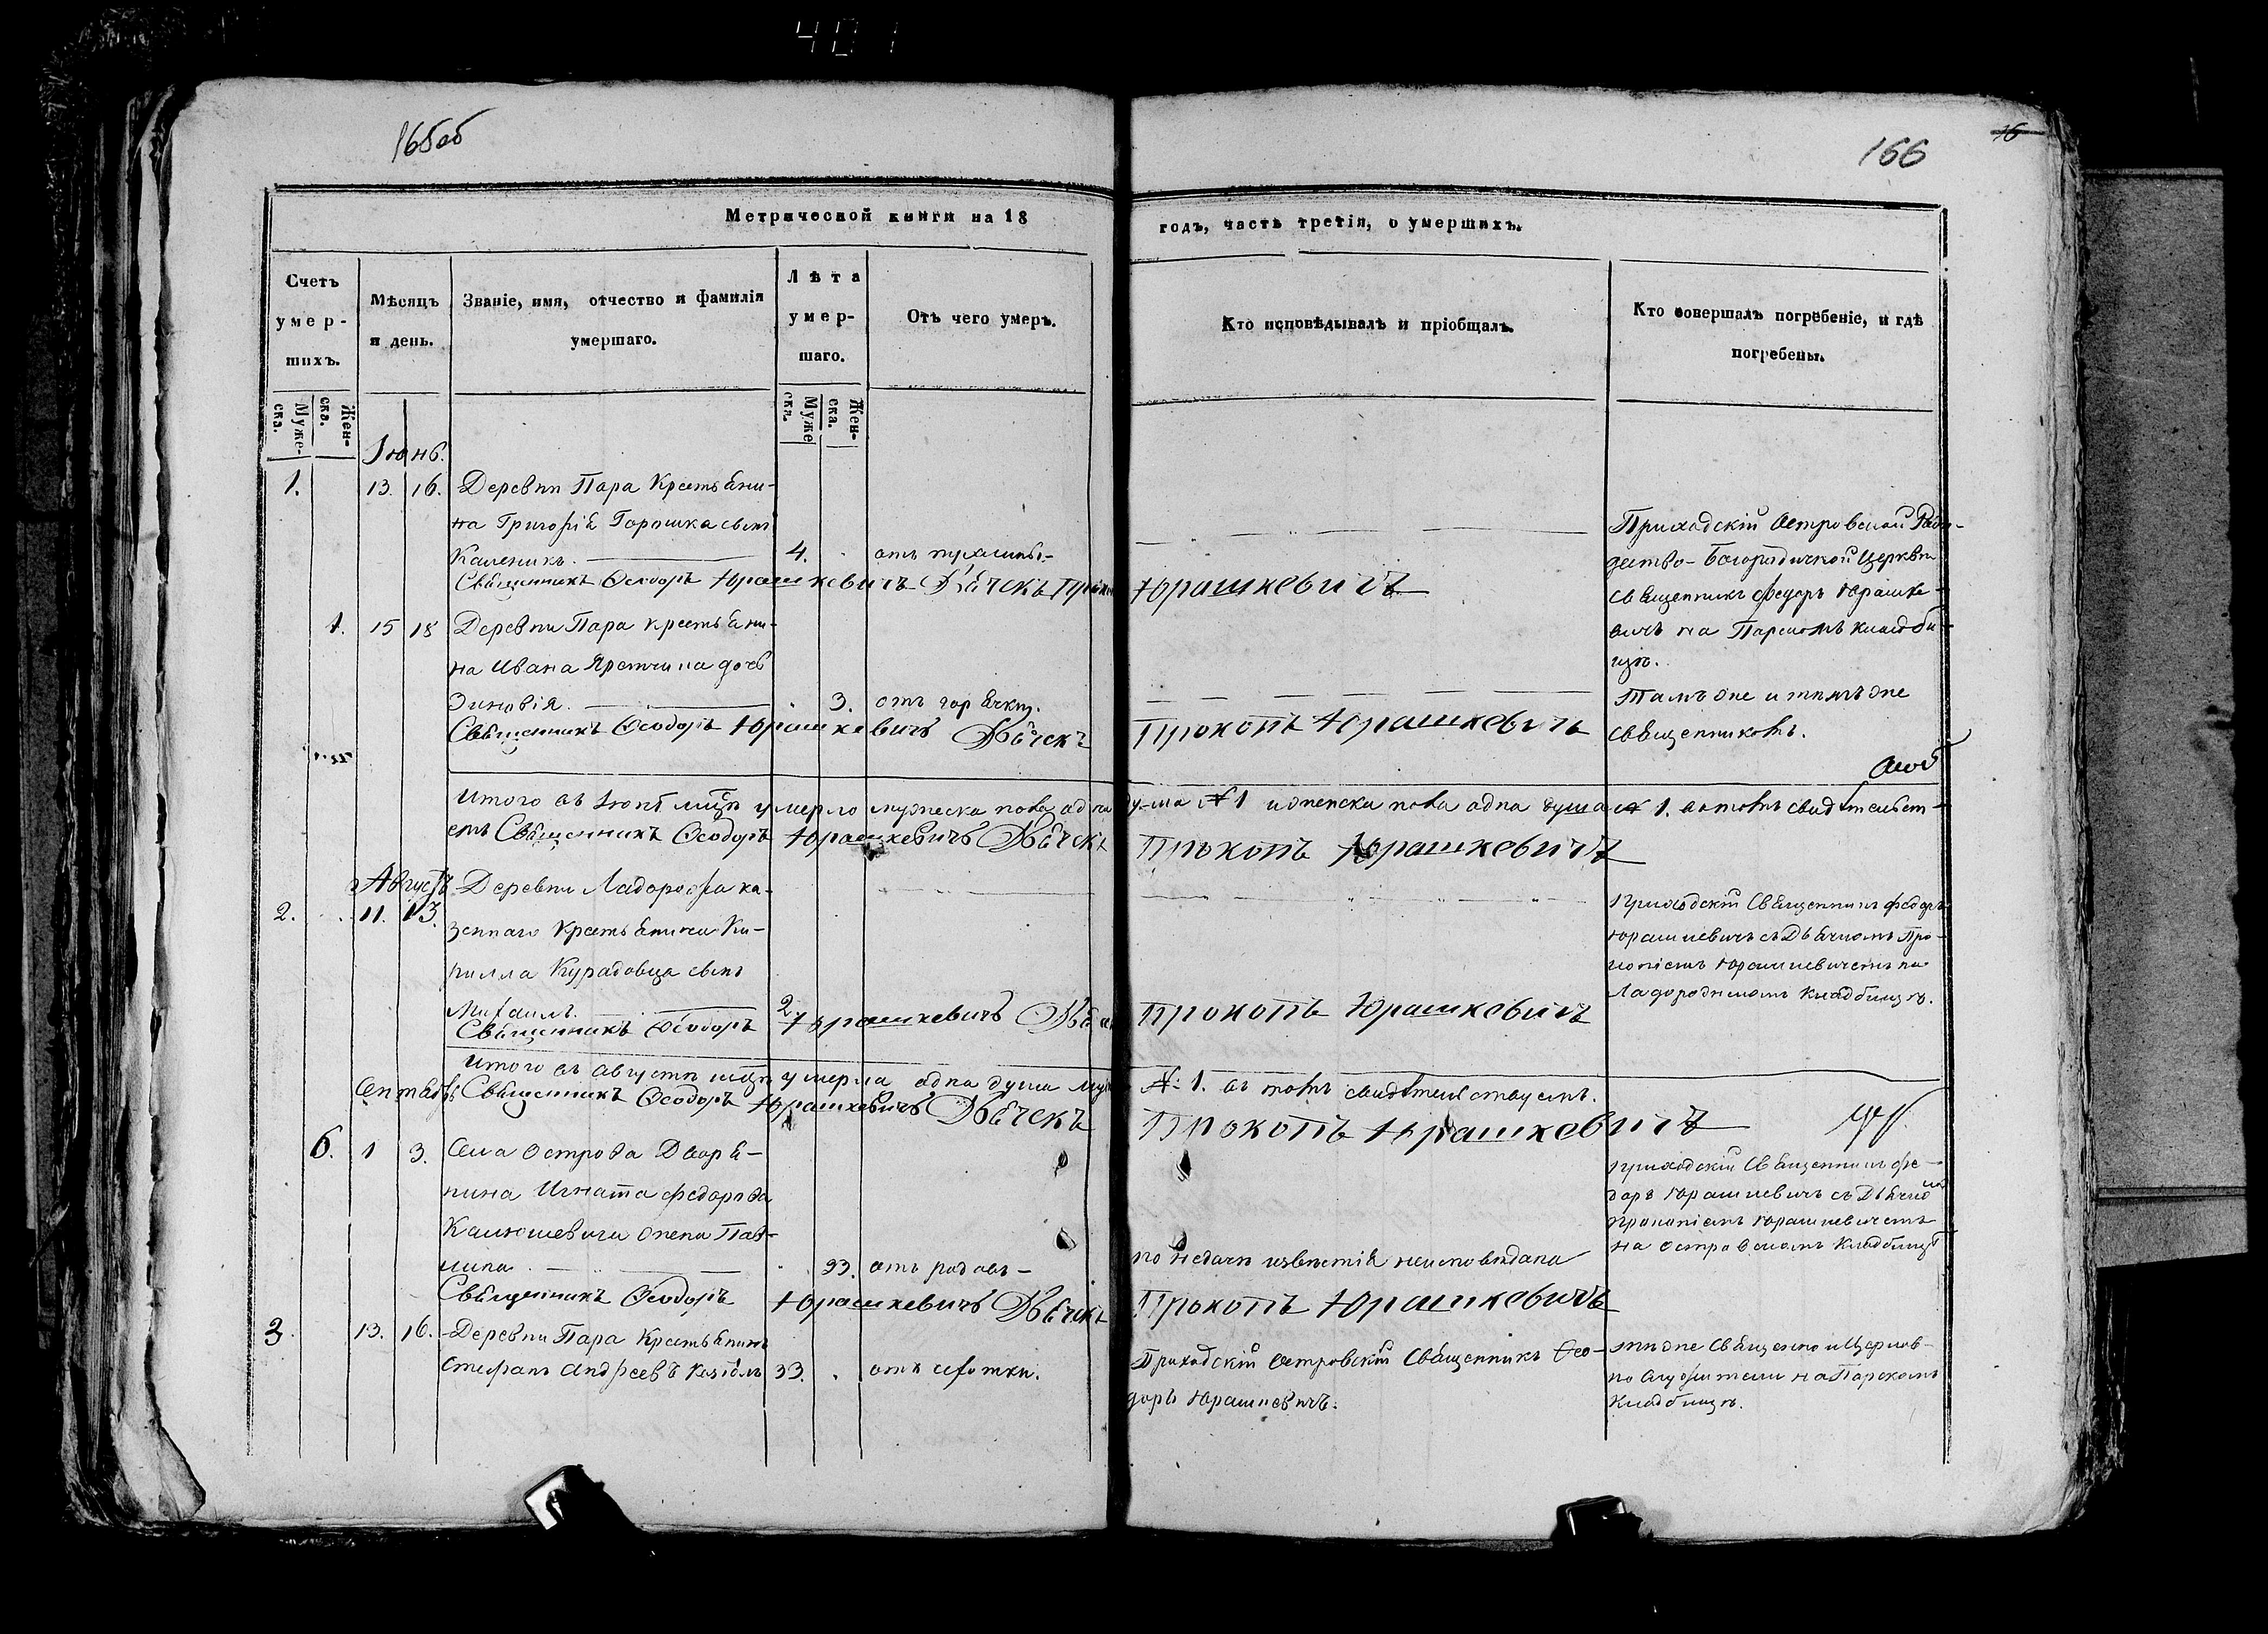 401
165об
166
16
Метрической книги на 18
годъ, часть третія, о умершихъ.
Счетъ
умер-
шихъ.
Мѣсяцъ
и день.
Званіе, имя, отчество и фамилія
умершаго.
Лѣта
умер-
шаго.
Отъ чего умеръ.
Кто исповѣдывалъ и пріобщалъ.
Кто совершалъ погребеніе, и гдѣ
погребены.
Муже-
ска.
Жен-
ска.
Муже
ска.
Жен-
ска.
Іюнь.
1. 13. 16. Деревни Пара Крестьяни-
на Григорія Горошка сынъ
Каленикъ. 4. отъ
Священникъ Ѳеодоръ Юрашкевичъ Дьячекъ Прокопъ Юрашкевичъ
Приходскій Островской Рож-
дество-Богородичной Церкви
священникъ Федоръ Юрашке-
вичъ на Парскомъ кладби-
щѣ.
1. 15 18 Деревни Пара крестьяни-
на Ивана дочь
Зиновія. 3. отъ горячки.
Священникъ Ѳеодоръ Юрашкевичъ Дьячекъ Прокопъ Юрашкевичъ
Тамъ же и тѣмъ же
священникомъ.
Итого въ Іюнѣ мцѣ умерло мужеска пола одна душа № 1 и женска пола одна душа № 1. въ томъ свидѣтельст-
Священникъ Ѳеодоръ Юрашкевичъ Дьячекъ Прокопъ Юрашкевичъ
Августъ
2. 11. 13. Деревни ка-
зеннаго Крестьянина Ки-
рилла Курадовца сынъ
Михаилъ. 2.
Священникъ Ѳеодоръ Юрашкевичъ Дьячекъ Прокопъ Юрашкевичъ
Приходскій Священникъ Федоръ
Юрашкевичъ съ Дьячкомъ Про-
копіемъ Юрашкевичемъ на
кладбищѣ.
Итого въ Августѣ мцѣ умерла одна душа № 1. въ томъ свидѣтельствуемъ.
Сентябрь
Священникъ Ѳеодоръ Юрашкевичъ Дьячекъ Прокопъ Юрашкевичъ
6. 1 3. Села Острова Дворя-
нина Игната Федорова
жена Пав-
лина. 33. отъ родовъ
по недачѣ извѣстія неисповѣдана
Священникъ Ѳеодоръ Юрашкевичъ Дьячекъ Прокопъ Юрашкевичъ
приходскій Священникъ Фе-
доръ Юрашкевичъ съ Дьячкомъ
Прокопіемъ Юрашкевичемъ
на Островскомъ Кладбищѣ
3 13. 16. Деревни Пара Крестьянинъ
Стефанъ Андреевъ 33. отъ сухотки.
Приходскій Островскій Священникъ Ѳео-
доръ Юрашкевичъ.
тѣ же Священно и Церков-
но служители на Парскомъ
Кладбищѣ.